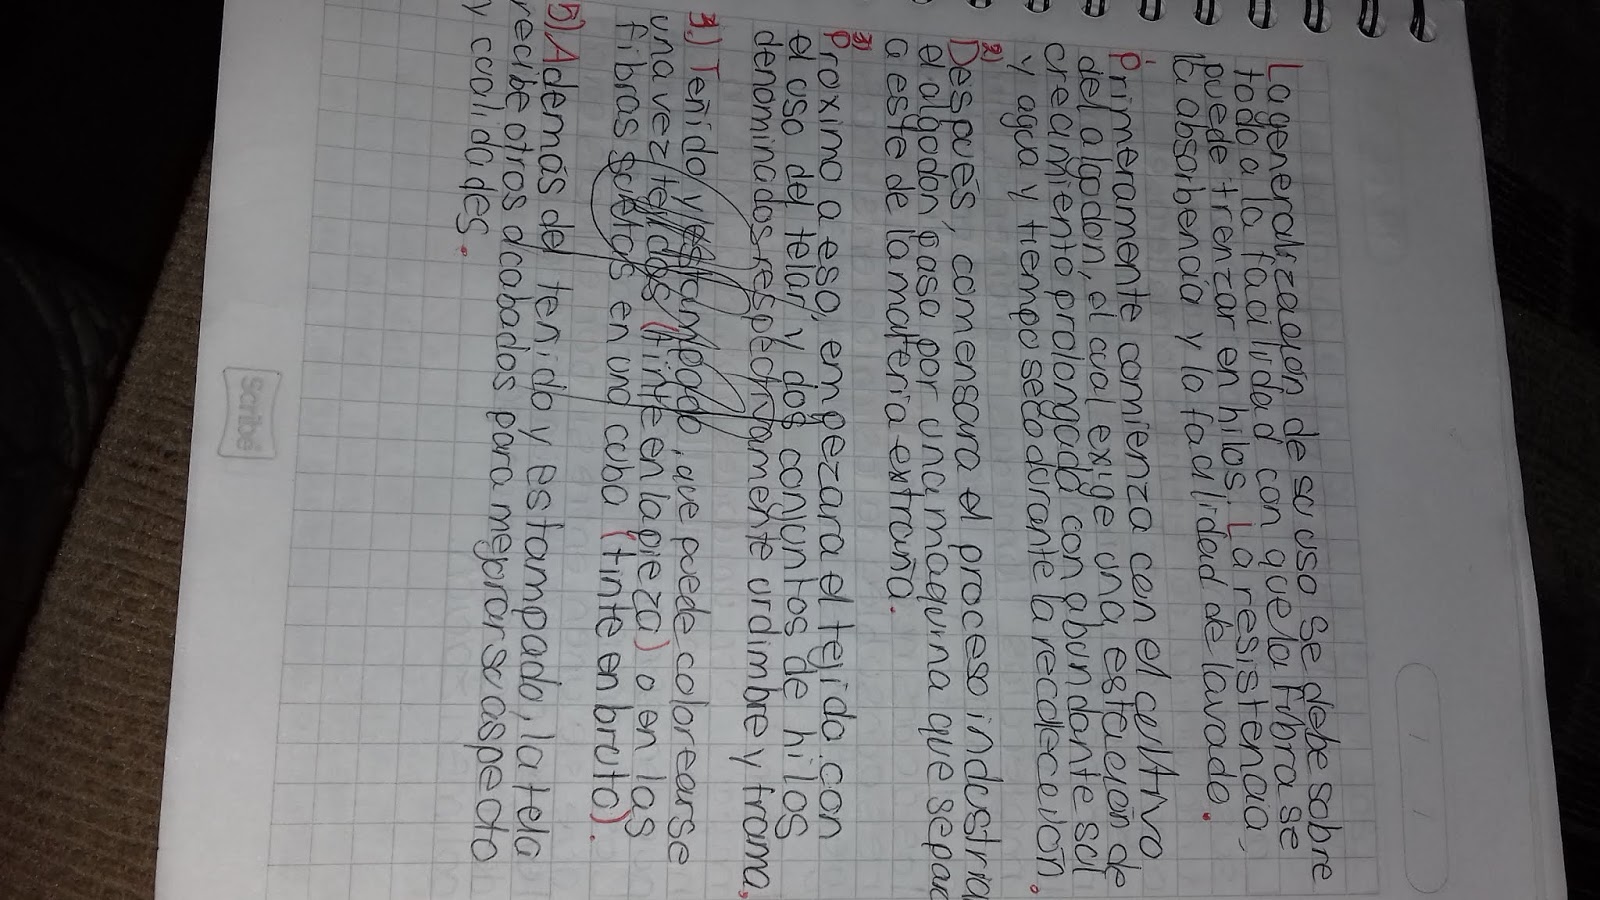 La generalización de su uso se debe sobre
todo a la facilidad con que la fibra se
puede trenzar en hilos. La resistencia,
la absorbencia y la facilidad de lavado.
1)
Primeramente comienza con el cultivo
del algodón, el cual exige una estación de
crecimiento prolongada con abundante sol
y agua y tiempo seco durante la recolección.
2)
Después, comensara el proceso industria
el algodón, pasa por una maquina que separa
a este de la materia extraña.
3)
Proximo a eso, empezara el tejido con
el uso del telar y dos conjuntos de hilos
denominados respectivamente urdimbre y trama.
3.) Teñido y estampado, que puede colorearse
una vez tejidos (tinte en la pieza) o en las
fibras sueltas en una cuba (tinte en bruto).
5) Además del teñido y estampado, la tela
recibe otros acabados para mejorar su aspecto
y cualidades.
Scribe